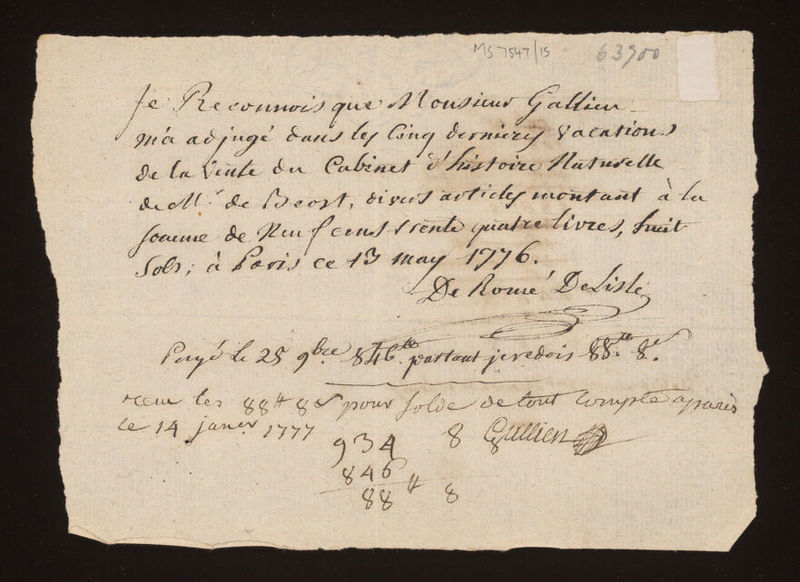 MS 7547/15
63900
Je Reconnois que Monsieur Gallien
m'a adjugé dans les Cinq dernieres vacations
de la Vente du Cabinet d'histoire Naturelle
de Mr. de Beost, divers articles montant à la
somme de Neuf cens trente quatre livres, huit
Sols; à Paris ce 13 may 1776.
De Romé DeLisle
Payé le 25 9bre 846tt partant je redois 88tt 8s.
receu les 88tt 8s pour solde de tout compte a paris
ce 14 janer 1777
934 8 Gallien
846
88tt 8